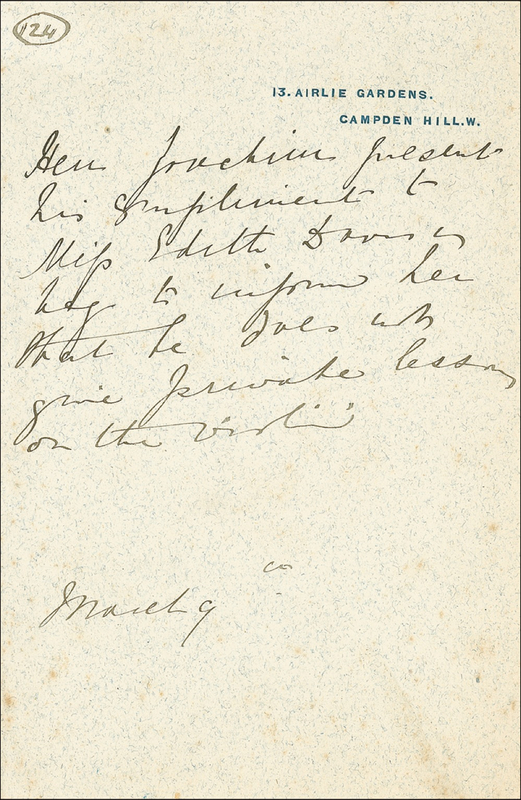 124
13. AIRLIE GARDENS.
CAMPDEN HILL.W.
Herr Joachim presents
his compliments to
Miss Edith
beg to inform her
that he does not
give private lessons
on the violin
March 9